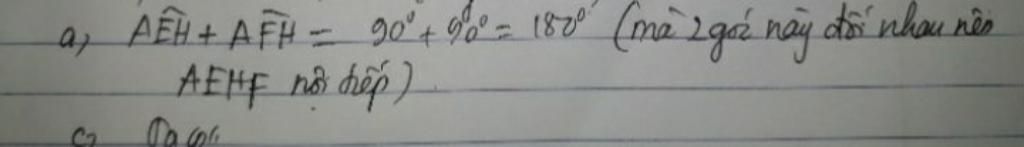 a, AÊH + AF̂H = 90° + 90° = 180° (mà 2 góc này đối nhau nên
AEHF nội tiếp)
c, Ta có